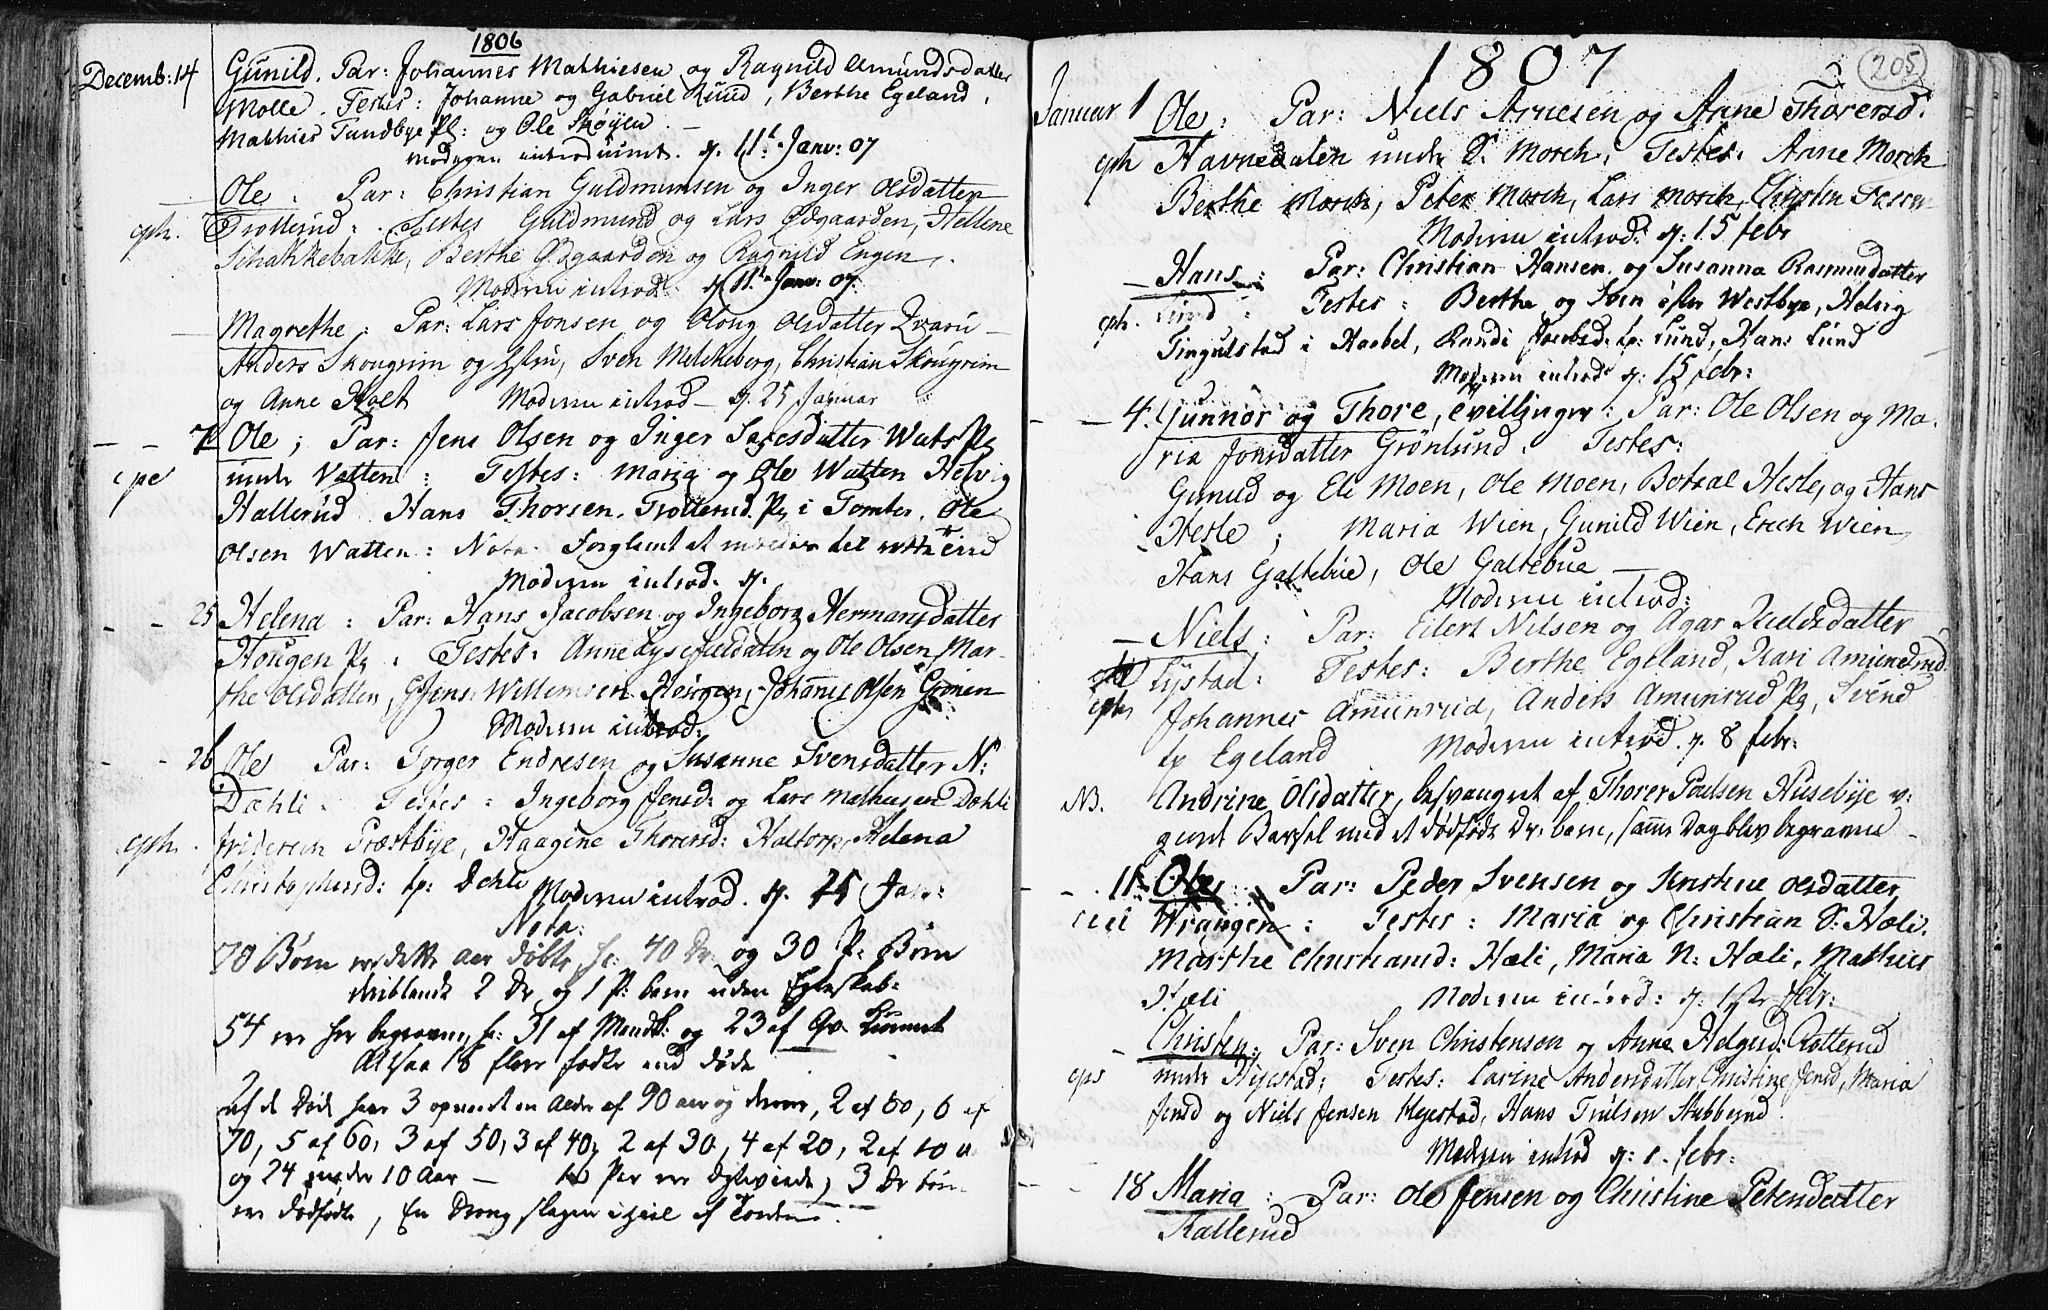 1806
Decemb: 14 Gunild. Par: Johannes Mathiesen og Ragnild Amundsdatter
Molle. Testes: Johanne og Gabriel Ruud, Berthe Egeland,
Mathies Tundbye Pl: og Ole Skøyen
Moderen introd. d. 11t Janv: 07
Ole. Par: Christian Guldmunsen og Inger Olsdatter
eph. Trollerud: Testes Guldmund og Lars Ødgaarden, Hellene
Schakkebakke, Berthe Ødgaarden og Ragnild Engen.
Moderen introd. d. 11t Janv: 07.
Magrethe: Par: Lars Jonsen og Oloug Olsdatter
Anders Skougrim og Hstru, Sven Melkeberg, Christian Skougrim
og Anne Holt Moderen introd d. 25 Januar
Ole; Par: Jens Olsen og Inger Larsdatter Wats Pg
under Vatten: Testes: Maria og Ole Watten Helvig
Hallerud Hans Thorsen. Trollerud. Pg i Tomter. Ole
Olsen Watten: Nota. Forglemt at
Moderen introd. d.
25 Helena: Par: Hans Jacobsen og Ingeborg Hermansdatter
Hougen Pg. Testes: Anne og Ole Olsen, Mar-
the Olsdatter, Jens Willemsen Hougen, Johanes Olsen Grønen
Moderen introd:
26 Ole Par: Torger Endresen og Susanne Svensdatter N:
Dæhli. Testes: Ingeborg Jensd: og Lars Mathiesen Dæhli
eph. Friderich Præstbye, Haagine Thorersd: Haltorp, Helena
Christophersd: tp: Dehli Moderen introd. d. 25 Jan:
Nota:
70 Børn ere dette Aar døbte, se: 40 Dr. og 30 P: Børn
iblandt 2 Dr og 1 P: barn uden Egteskab:
54 ere her begravne, se: 31 af Mandk: og 23 af Qv. Kiønnet
Altsaa 16 flere fødte end døde
af de Døde har 3 opnaaet en Alder af 90 aar og derover, 2 af 80, 6 af
70, 5 af 60, 3 af 50, 3 af 40, 2 af 30, 4 af 20, 2 af 10
og 24 under 10 Aar — Par ere Egteviede, 3 Dr børn
ere dødfødte, En Dreng slagen ihjel af Torden.
1807
205
Januar 1 Ole: Par: Niels Arnesen og Anne Thorersd.
eph Havnedalen under S. Morch. Testes: Anne Morch
Berthe Morch, Peter Morch, Lars Morch, Christen
Moderen introd: d: 15 febr
Hans: Par: Christian Hansen og Susanna Rasmusdatter
eph. Lund: Testes: Berthe og Sven Westbye, Helvig
Tingulstad i Haabel, Randi Jacobsd: tp: Lund, Hans Lund
Moderen introd d. 15 febr:
4. Gunnor og Thore, tvillinger: Par: Ole Olsen og Ma-
ria Jonsdatter Grønlund. Testes:
Gunild og Eli Moen, Ole Moen, Botzal Hesle, og Hans
Hesle; Maria Wien, Gunild Wien, Erich Wien,
Hans Galtebue, Ole Galtebue —
Moderen introd:
Niels: Par: Eilert Nilsen og Agar
Lystad: Testes: Berthe Egeland, Kari Amundrud
eph Johannes Amunrud, Anders Amunrud Pg, Svend
tp Egeland Moderen introd. d. 8 febr:
NB. Andrine Olsdatter, besvangret af Thorer Poulsen Husebye
giort Barsel med et dødfødt Dr: barn, samme Dag blev begraven
11. Ole: Par: Peder Svensen og Kristine Olsdatter
Wrangen: Testes: Maria og Christian S: Hæli.
Marthe Christiansd: Hæli, Maria N: Hæli, Mathies
Hæli Moderen introd: d. 1ste febr:
Christen: Par: Sven Christensen og Anne Helgesd: Trollerud
under Nyestad; Testes: Larine Andersdatter, Christine Jensd, Maria
Jensd og Niels Jensen Nyestad, Hans Trulsen Stubberud.
Moderen introd d: 1. febr:
18 Maria: Par: Ole Jensen og Christine Petersdatter
Kallerud